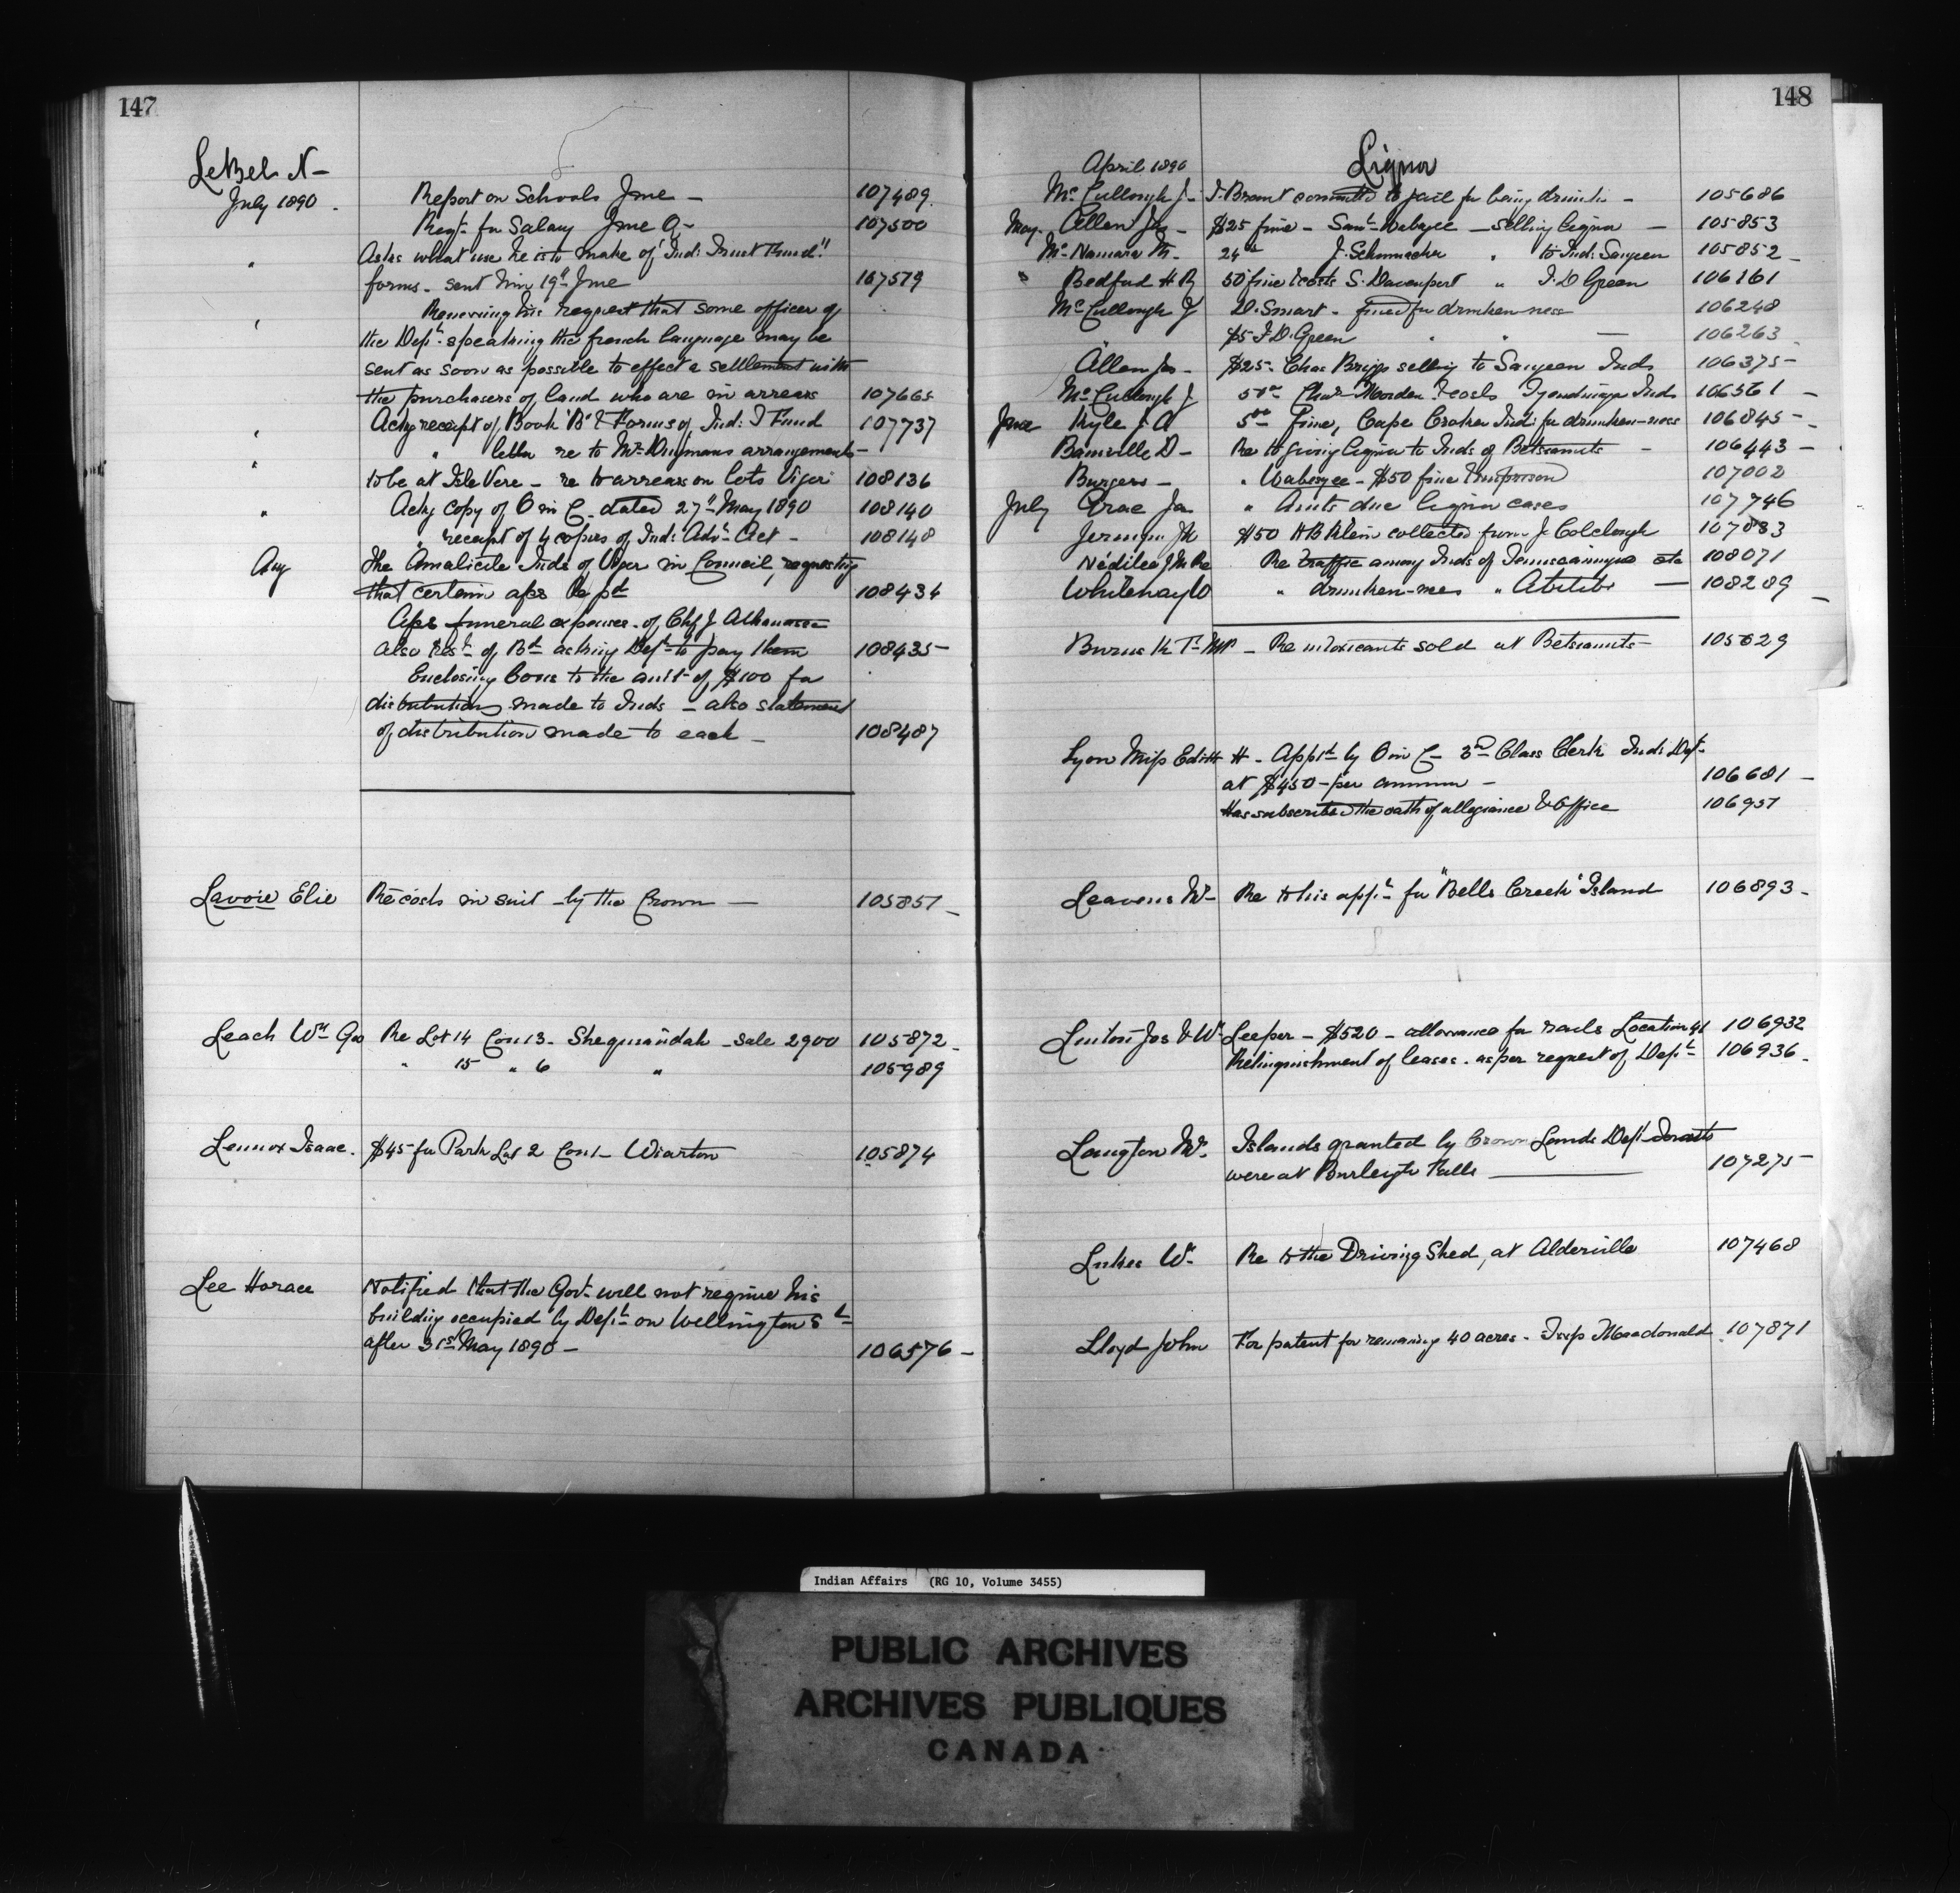 147
LeBel N-
July 1890. Report on Schools June - 107489.
Reqt for Salary June Q- 107500
" Asks what use he is to make of "Ind: Trust Fund"
forms - sent him 19th June 107579
" Renewing his request that some officer of
the Dept speaking the french language may be
sent as soon as possible to effect a settlement with
the purchasers of land who are in arrears 107665
" Ackg receipt of Book 'B' & Forms of Ind: T Fund 107737
" " letter re to Mr Dingmans arrangements -
to be at Isle Vere - re to arrears on lots Viger 108136
" Ackg copy of O in C. dated 27th May 1890 108140
" receipt of 4 copies of Ind: Adv: Act - 108148
Aug The Amalicite Inds of Viger in Council, requesting
that certain a/cs be pd 108434
A/cs funeral expenses of Chf J Athanase
also Rest of Bd asking Dept to pay them 108435-
Enclosing Covrs to the amt of $100 for
distributions made to Inds - also statement
of distribution made to each - 108487
Lavoie Elie Re costs in suit by the Crown - 105851 -
Leach Wm Geo Re Lot 14 Con 13 - Sheguiandah - sale 2900 105872 -
" 15 " 6 " 105989
Lennox Isaac. $45 for Park Lot 2 Con 1 - Wiarton 105874
Lee Horace Notified that the Govt will not require his
building occupied by Dept on Wellington St
after 31st May 1890 - 106576 -
148
April 1890 Liquor
McCullough J - J. Brant committed to jail for being drunk - 105686
May - Allen Jas - $25 fine - Saml Wabagee - selling liquor - 105853
McNamara M. - 24 00 J. Schumacher " to Ind: Saugeen 105852 -
" Bedford H B 50 fine & costs S. Davenport " J. D Green 106161
McCullough J D. Smart - fined for drunkenness 106248
$5 J. D. Green " " - 106263
Allen Jas - $25 - Chas Briggs selling to Saugeen Inds 106375 -
McCullough J 50 00 Chas Morden & costs Tyendinaga Inds 106561 -
June Kyle J. A 5 00 Fine, Cape Croker Ind: for drunken-ness 106845 -
Bainville D - Re to giving liquor to Inds of Betsiamits - 106443 -
Burgess - " Wabagee - $50 fine Imprison 107002
July Crae Jas " Amts due liquor cases 107746
Jermyn Jn $50 H B Klein collected from J. Colclough 107883
Nédilec J M Re Re traffic among Inds of Temiscamingue etc 108071
Whiteway W " drunken-nes " Abitibi - 108289 -
Burns K F - MP - Re intoxicants sold at Betsiamits - 105629
Lyon Miss Edith H - Apptd by O in C - 3rd Class Clerk Ind: Dept
at $450 - per annum - 106681 -
Has subscribed the oath of allegiance & office 106951
Leavens Wm Re to his appn for "Bells Creek" Island 106893 -
Linton Jas & Wm Leeper - $520 - allowance for rails Location 41 106932
Relinquishment of leases - as per request of Dept 106936 -
Langton Mr. Islands granted by Crown Lands Dept Toronto
were at Burleigh Falls 107275 -
Lukes Wm Re to the Driving Shed, at Alderville 107468
Lloyd John For patent for remaining 40 acres - Twp Macdonald 107871
Indian Affairs (RG 10, Volume 3455)
PUBLIC ARCHIVES
ARCHIVES PUBLIQUES
CANADA